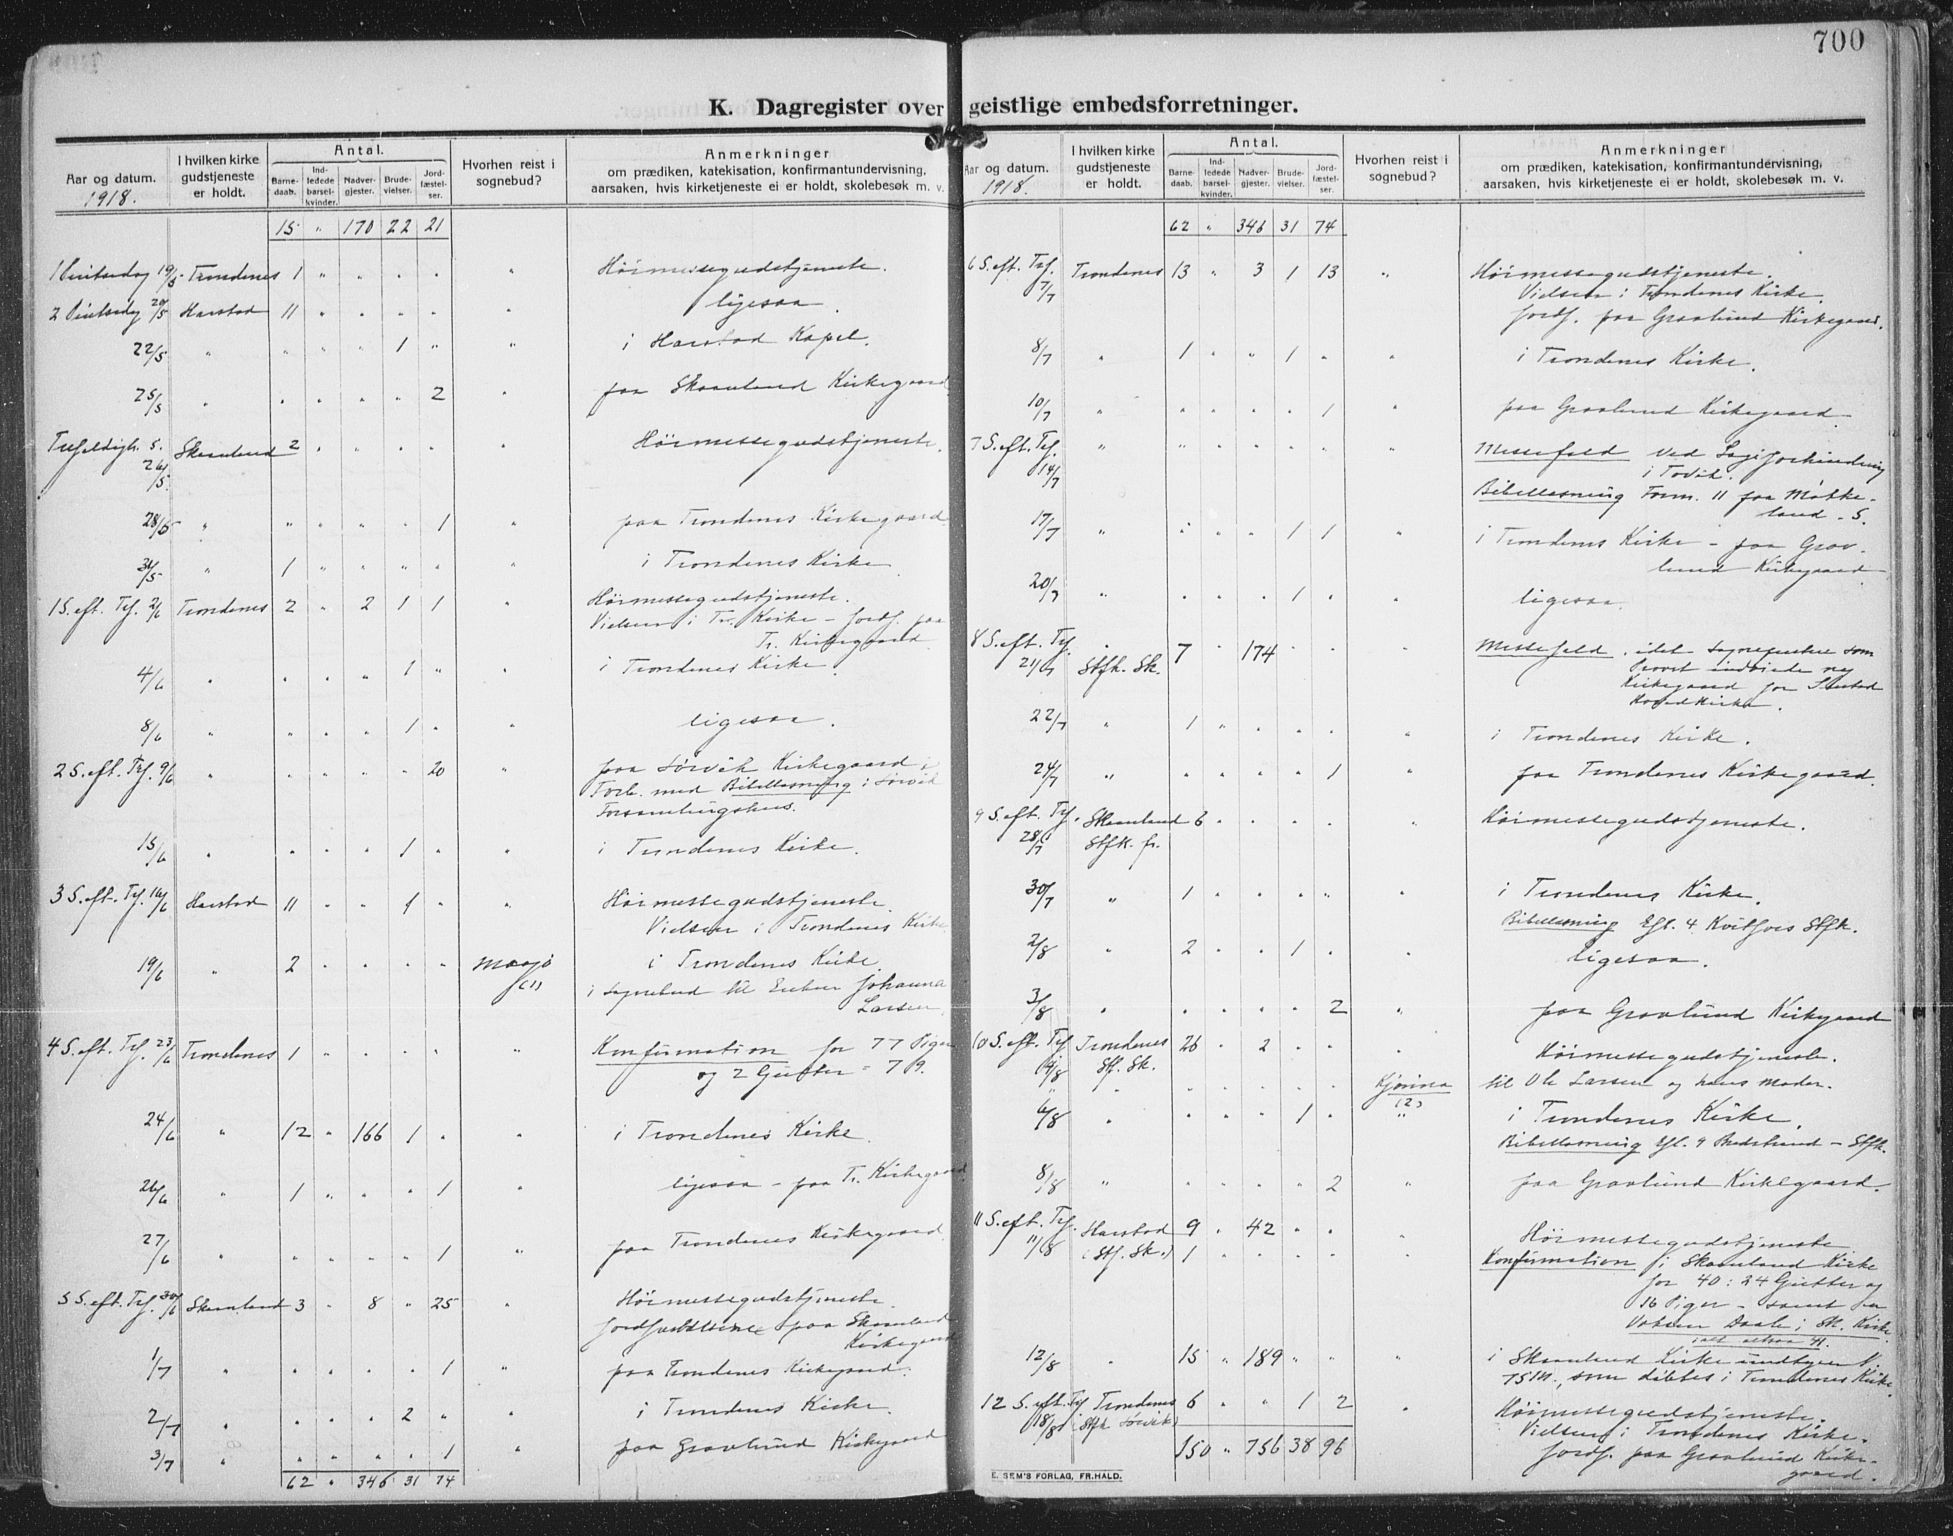 700
K. Dagregister over geistlige embedsforretninger.
Aar og datum. 1918.
I hvilken kirke gudstjeneste er holdt.
Antal.
Barne-daab.
Ind-ledede barsel-kvinder.
Nadver-gjester.
Brude-vielser.
Jord-fæstel-ser.
Hvorhen reist i sognebud?
Anmerkninger
om prædiken, katekisation, konfirmantundervisning,
aarsaken, hvis kirketjeneste ei er holdt, skolebesøk m. v.
15 " 170 22 21
1 Pintsedag 19/5 Trondenes 1 " " " " " Høimessegudstjeneste.
2 Pintsedag 20/5 Harstad 11 " " " " " ligesaa.
22/5 " " " " 1 " " i Harstad Kapel.
25/5 " " " " " 2 " paa Skaanland Kirkegaard
Trefoldigh. S. 26/5 Skaanland 2 " " " " " Høimessegudstjeneste.
28/5 " " " " " 1 " paa Trondenes Kirkegaard
31/5 " 1 " " " " " i Trondenes Kirke
1 S. eft. Trf. 2/6 Trondenes 2 " 2 1 1 " Høimessegudstjeneste.
Vielsen i Tr. Kirke - Jordf. paa
Tr. Kirkegaard
4/6 " " " " 1 " " i Trondenes Kirke.
8/6 " " " " 1 " " ligesaa.
2 S. eft. Trf. 9/6 " " " " " 20 " paa Sørvik Kirkegaard i
Forb. med Bibellæsning i Sørvik
Forsamlingshus.
15/6 " " " " 1 " " i Trondenes Kirke.
3 S. eft. Trf. 16/6 Harstad 11 " " 1 " " Høimessegudstjeneste.
Vielsen i Trondenes Kirke
19/6 " 2 " " " " (1) i Trondenes Kirke
i Sognebud til Enken Johanna
Larsen.
4 S. eft. Trf. 23/6 Trondenes 1 " " " " " Konfirmation for 77 Piger
og 2 Gutter
24/6 " 12 " 166 1 " " i Trondenes Kirke.
26/6 " 1 " " " 1 " ligesaa - paa Tr. Kirkegaard
27/6 " " " " " 1 " paa Trondenes Kirkegaard.
5 S. eft. Trf. 30/6 Skaanland 3 " 8 " 25 " Høimessegudstjeneste
Jordfæstelserne paa Skaanland
Kirkegaard
1/7 " " " " " 1 " paa Trondenes Kirkegaard.
2/7 " " " " 2 " " i Trondenes Kirke.
3/7 " " " " " 1 " paa Gravlund Kirkegaard
62 " 346 31 74
Aar og datum. 1918.
I hvilken kirke gudstjeneste er holdt.
Antal.
Barne-daab.
Ind-ledede barsel-kvinder.
Nadver-gjester.
Brude-vielser.
Jord-fæstel-ser.
Hvorhen reist i sognebud?
Anmerkninger
om prædiken, katekisation, konfirmantundervisning,
aarsaken, hvis kirketjeneste ei er holdt, skolebesøk m. v.
62 " 346 31 74
6 S. eft. Trf. 7/7 Trondenes 13 " 3 1 13 " Høimessegudstjeneste.
Vielsen i Trondenes Kirke.
Jordf. paa Gravlund Kirkegaard.
8/7 " 1 " " 1 " " i Trondenes Kirke.
10/7 " " " " " 1 " paa Gravlund Kirkegaard.
7 S. eft. Trf. 14/7 " " " " " " " Messefald ved
i Tovik.
Bibellæsning Form. 11 paa
land - S.
17/7 " " " " 1 1 " i Trondenes Kirke - paa Grav-
lund Kirkegaard
20/7 " " " " 1 " " ligesaa.
8 S. eft. Trf. 21/7 " Stfk. Sk. 7 " 174 " " Messefald, idet Sognepresten som
Provst indviede ny
Kirkegaard for
Hovedkirke.
22/7 " 1 " " " " " i Trondenes Kirke.
24/7 " " " " " 1 " paa Trondenes Kirkegaard.
9 S. eft. Trf. 28/7 Skaanland Stfk. fr. 6 " " " " " Høimessegudstjeneste.
30/7 " 1 " " " " " i Trondenes Kirke.
Bibellæsning Eft. 4 Kvitfors Stfk.
2/8 " 2 " " 1 " " ligesaa.
3/8 " " " " " 2 " paa Gravlund Kirkegaard
10 S. eft. Trf. 4/8 Trondenes Stf. Sk. 26 " 2 " " " Høimessegudstjeneste.
" " " " " " Kjønna (2) til Ole Larsen og hans Moder.
6/8 " " " " 1 " " i Trondenes Kirke.
Bibellæsning Eft. 9 - Stfk.
8/8 " " " " " 2 " paa Gravlund Kirkegaard.
11 S. eft. Trf. 11/8 Harstad 9 " 42 " " " Høimessegudstjeneste
(Stf. Sk.) 1 " " " " Konfirmation i Skaanland Kirke
for 40: 24 Gutter og
16 Piger - samt
i Sk. Kirke
ialt altsaa 41.
12/8 " 15 " 189 " " " i Skaanland Kirke
som døbtes i Trondenes Kirke.
12 S. eft. Trf. 18/8 Trondenes (Stfk Sørvik) 6 " " 1 2 " Høimessegudstjeneste.
Vielsen i Trondenes Kirke.
Jordf. paa Gravlund Kirke-
gaard.
150 " 756 38 96
E. SEM'S FORLAG, FR.HALD.